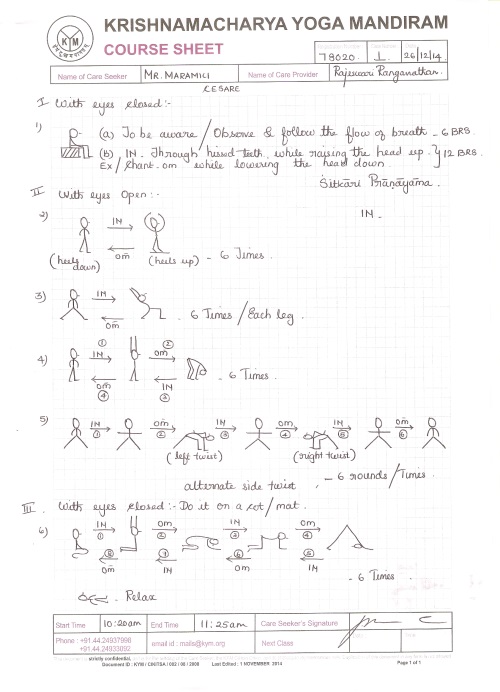 KRISHNAMACHARYA YOGA MANDIRAM
KYM
COURSE SHEET
78020 1 26/12/14
Name of Care Seeker MR. MARAMICI Name of Care Provider Rajeswari Ranganathan.
CESARE
I With eyes closed:-
1) (a) To be aware / Observe & follow the flow of breath - 6 BRS.
(b) IN - Through hissed teeth, while raising the head up. } 12 BRS.
Ex / Chant - om while lowering the head down
Sitkāri Prāṇāyāma.
II With eyes Open:-
IN -
2) IN
om
(heels down) (heels up) - 6 Times.
3) IN
om
6 Times / Each leg.
4) ① ②
IN om
om IN
④ ③
- 6 Times.
5) IN om IN om IN om
① ② ③ ④ ⑤ ⑥
(left twist) (right twist)
alternate side twist, - 6 rounds / Times.
III. With eyes closed:- Do it on a cot / mat.
6) IN om IN om
① ② ③ ④
⑧ ⑦ ⑥ ⑤
om IN om IN
- 6 Times.
Relax
Start Time 10:20am End Time 11:25am Care Seeker's Signature
Phone : +91.44.24937998
+91.44.24933092
email id : mails@kym.org Next Class
strictly confidential.
Document ID : KYM / CIKITSA / 002 / 00 / 2008 Last Edited : 1 NOVEMBER 2014 Page 1 of 1